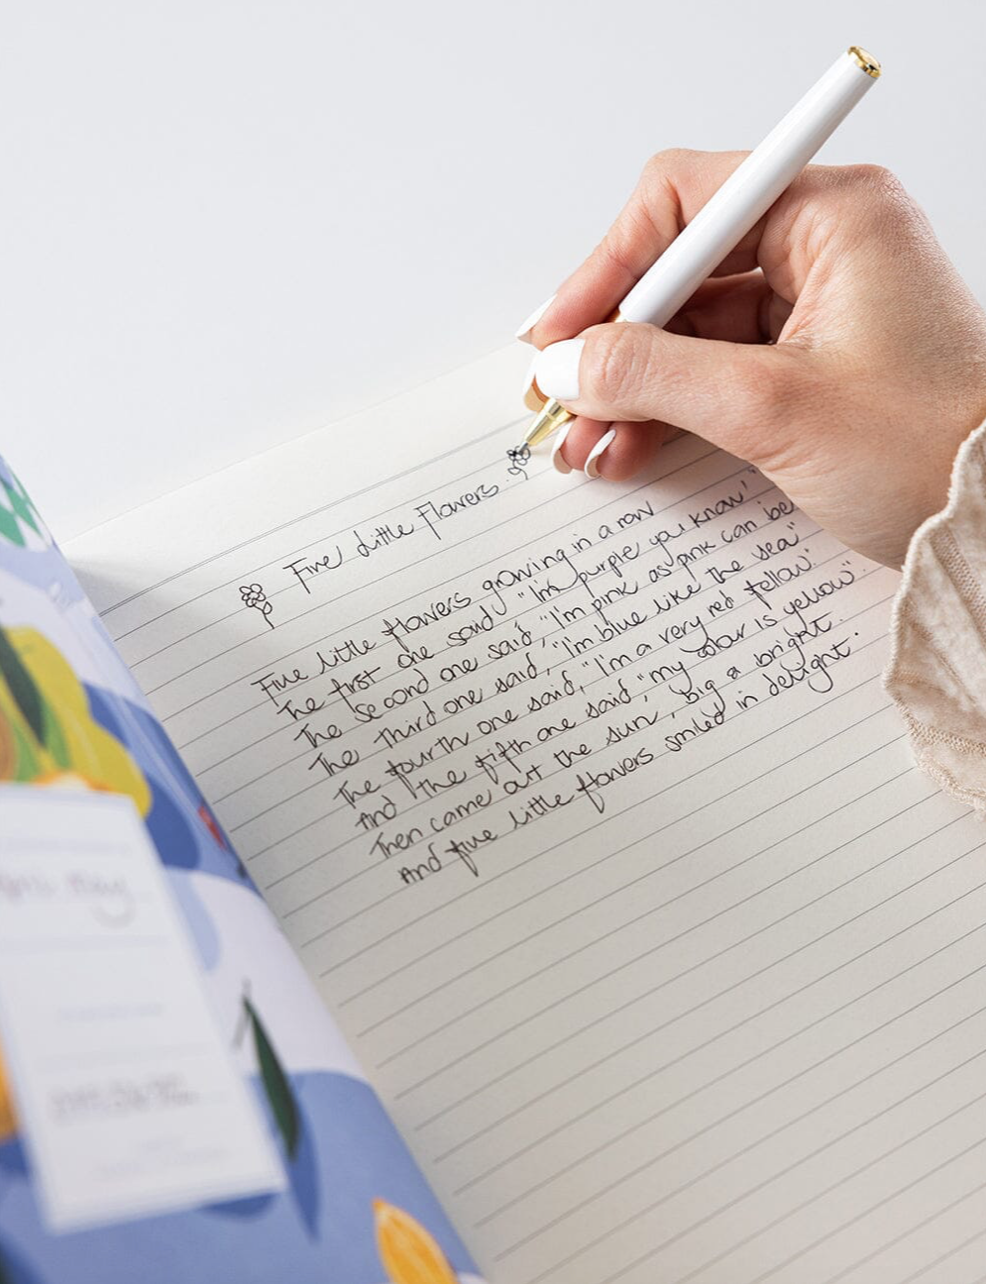 Five Little Flowers.
Five little flowers growing in a row
The first one said, "I'm purple you know"
The second one said, "I'm pink as pink can be
The third one said, "I'm blue like the sea"
The fourth one said, "I'm a very red fellow".
And the fifth one said "my color is yellow".
Then came out the sun, big a bright.
And five little flowers smiled in delight.